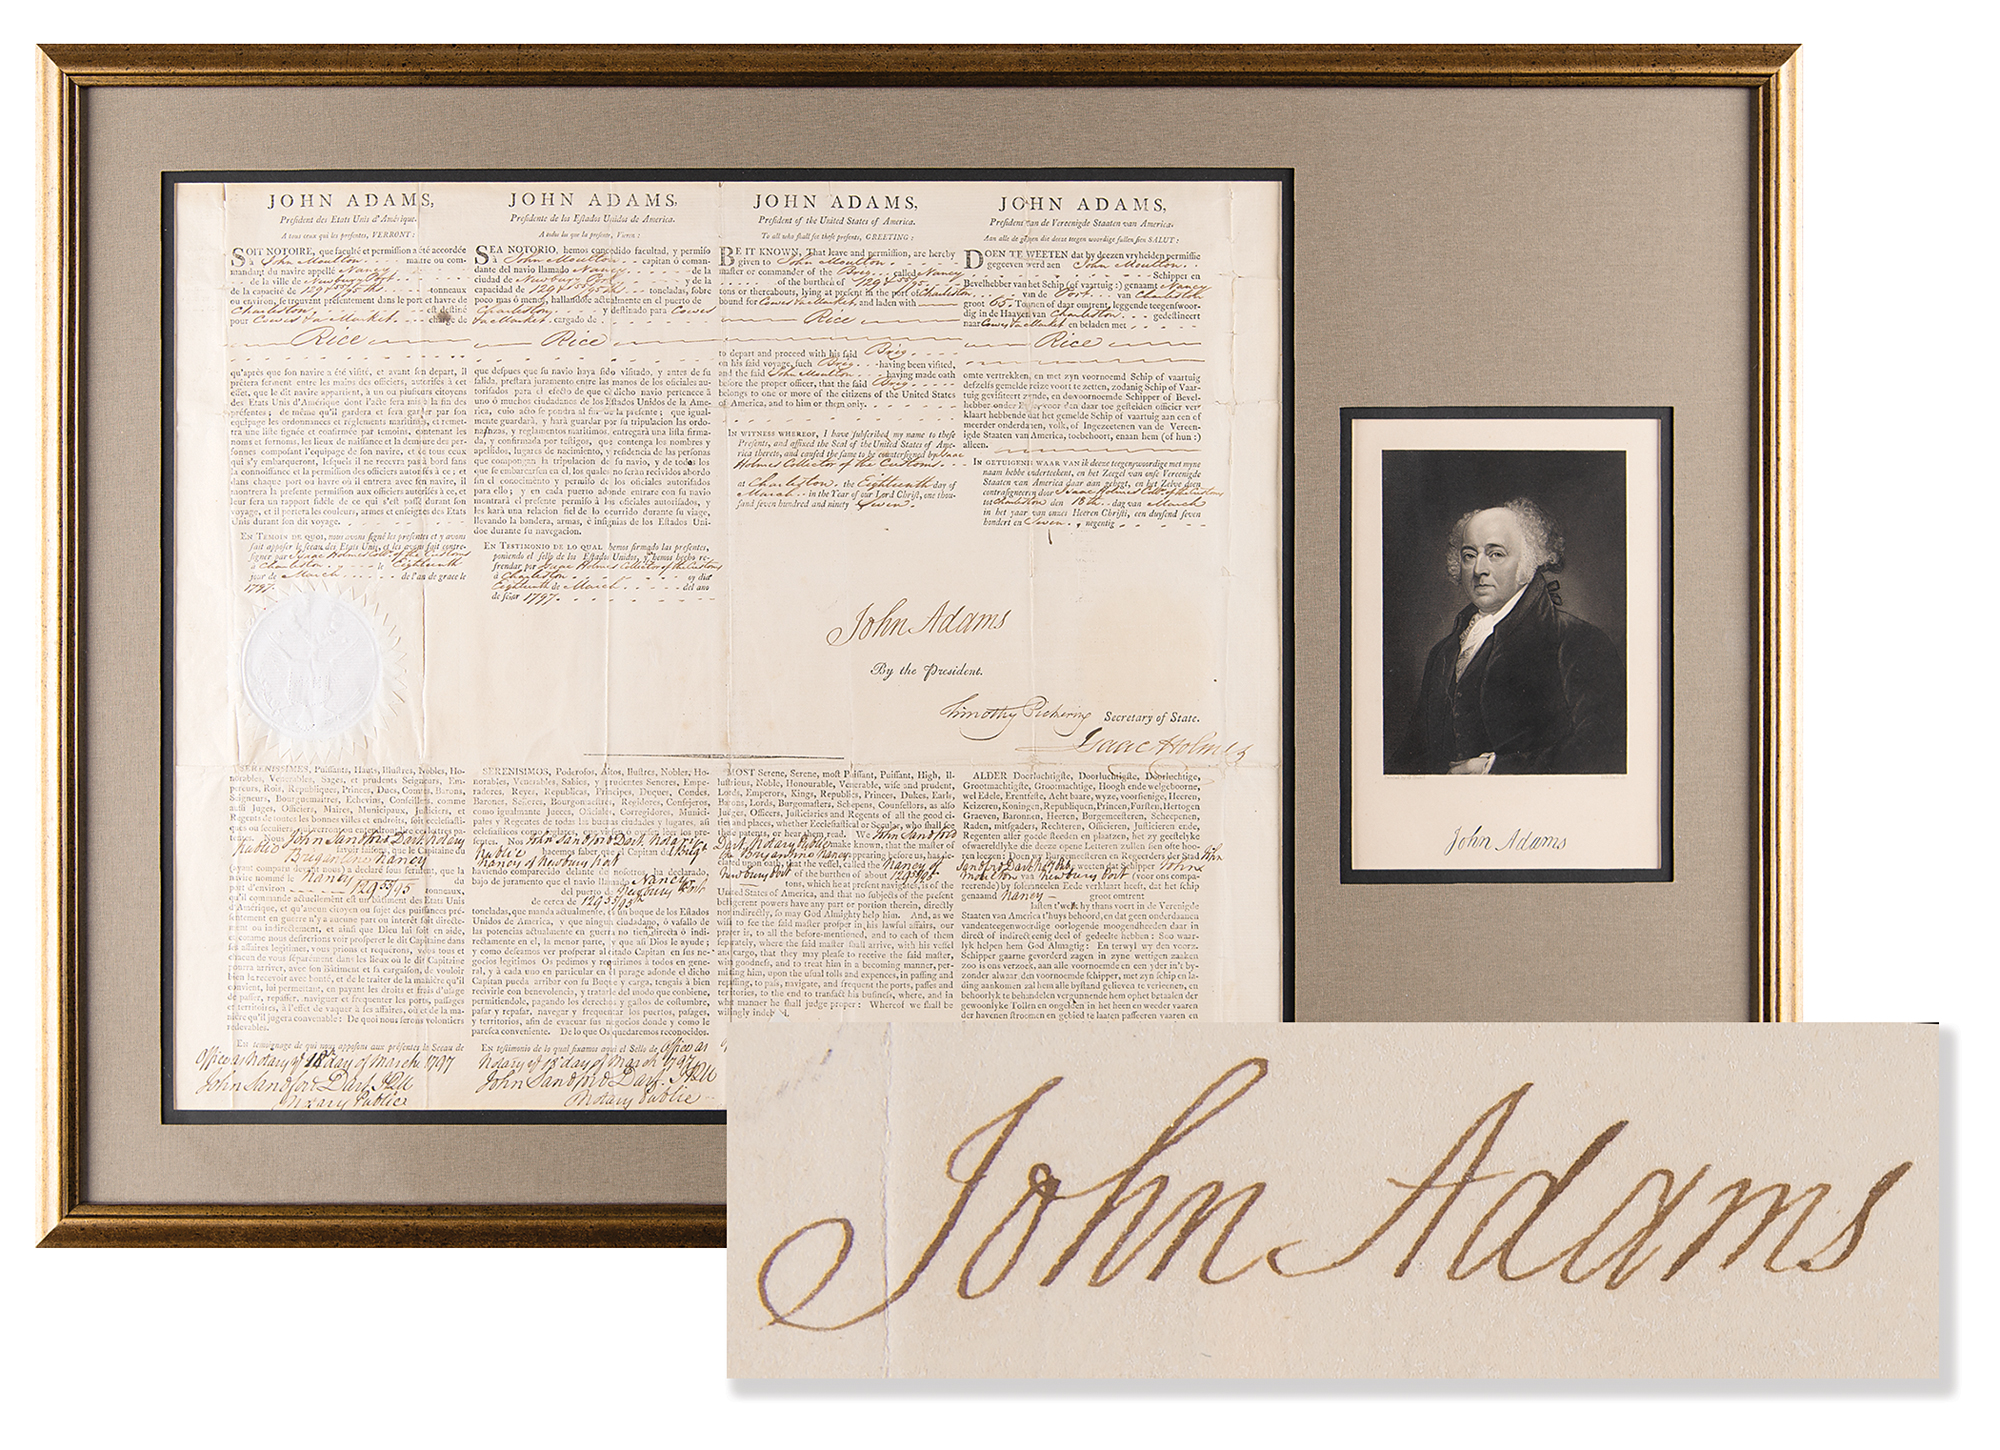 JOHN ADAMS,
President des Etats Unis d'Amérique.
A tous ceux qui les présentes, VERRONT:
SOIT NOTOIRE, que faculté et permission a été accordée
à John Moulton maitre ou com-
mandant du navire appellé Nancy
de la ville de Newbury Port
de la capacité de 129 & 55/95ths tonneaux
ou environ, se trouvant présentement dans le port et havre de
Charleston est destiné
pour Cowes & a Market chargé de
Rice
qu'après que son navire a été visité, et avant son depart, il
prêtera serment entre les mains des officiers, autorisés à cet
effet, que le dit navire appartient, à un ou plusieurs citoyens
des Etats Unis d'Amérique dont l'acte sera mis à la fin des
présentes; de même qu'il gardera et sera garder par son
équipage les ordonnances et réglements maritimes, et remet-
tra une liste signée et confirmée par temoins, contenant les
noms et surnoms, les lieux de naissance et la demeure des per-
sonnes composant l'equipage de son navire, et de tous ceux
qui s'y embarqueront, lesquels il ne recevra pas à bord sans
la connoissance et la permission des officiers autorisés à ce; et
dans chaque port ou havre où il entrera avec son navire, il
montrera la présente permission aux officiers autorisés à ce, et
leur fera un rapport fidèle de ce qui s'est passé durant son
voyage, et il portera les couleurs, armes et enseignes des Etats
Unis durant son dit voyage.
EN TEMOIN DE QUOI, nous avons signé les présentes et y avons
fait apposer le sceau des Etats Unis, et les avons fait contre-
signer par Isaac Holmes Collr. of the Customs
à Charleston le Eighteenth
jour de March de l'an de grace le
1797.
JOHN ADAMS,
Presidente de los Estados Unidos de America.
A todos los que la presente, Vieren:
SEA NOTORIO, hemos concedido facultad, y permiso
à John Moulton capitan ò coman-
dante del navio llamado Nancy de la
ciudad de Newbury Port y de la
capacidad de 129 & 55/95ths toneladas, sobre
poco mas ò menos, hallandose actualmente en el puerto de
Charleston y destinado para Cowes
& a Market cargado de
Rice
que despues que su navio haya sido visitado, y antes de su
salida, prestara juramento entre las manos de los oficiales au-
torisados para el efecto de que el dicho navio pertenece à
uno ó muchos ciudadanos de los Estados Unidos de la Ame-
rica, cuio acto se pondra al fin de la presente; que igual-
mente guardará, y hará guardar por su tripulacion las ordo-
nanzas, y reglamentos maritimos, entregará una lista firma-
da, y confirmada por testigos, que contenga los nombres y
apellidos, lugares de nacimiento, y residencia de las personas
que compongan la tripulacion de su navio, y de todos los
que se embarcasen en el, los quales no serán recividos abordo
sin el conocimiento y permiso de los oficiales autorisados
para ello; y en cada puerto adonde entrare con su navio
montrará el presente permiso à los oficiales autorisados, y
les hará una relacion fiel de lo ocurrido durante su viage,
llevando la bandera, armas, é insignias de los Estados Uni-
doe durante su navegacion.
EN TESTIMONIO DE LO QUAL hemos firmado las presentes,
poniendo el sello de los Estados Unidos, y hemos hecho re-
frendar por Isaac Holmes Collector of the Customs
à Charleston oy dia
Eighteenth de March del ano
de señor 1797.
JOHN ADAMS,
President of the United States of America.
To all who shall see these presents, GREETING:
BE IT KNOWN, That leave and permission, are hereby
given to John Moulton
master or commander of the Brig called Nancy
of the burthen of 129 & 55/95
tons or thereabouts, lying at present in the port of Charleston
bound for Cowes & a Market, and laden with
Rice
to depart and proceed with his said Brig
on his said voyage, such Brig having been visited,
and the said John Moulton having made oath
before the proper officer, that the said Brig
belongs to one or more of the citizens of the United States
of America, and to him or them only.
IN WITNESS WHEREOF, I have subscribed my name to these
Presents, and affixed the Seal of the United States of Ame-
rica thereto, and caused the same to be countersigned by Isaac
Holmes Collector of the Customs
at Charleston the Eighteenth day of
March in the Year of our Lord Christ, one thou-
sand seven hundred and ninety Seven.
JOHN ADAMS,
President van de Vereenigde Staaten van America.
Aan alle de geenen die deeze teegen woordige sullen sien SALUT:
DOEN TE WEETEN dat by deezen vryheiden permissie
gegeeven werd aen John Moulton
Schipper en
Bevelhebber van het Schip (of vaartuig:) genaamt Nancy
van de Port van Charleston
groot 65 Tonnen of daar omtrent, leggende teegenswoor-
dig in de Haaven van Charleston gedestineert
naar Cowes & a Market en beladen met
Rice
omte vertrekken, en met zyn voornoemd Schip of vaartuig
defzelfs gemelde reize voort te zetten, zodanig Schip of Vaar-
tuig gevisiteert zynde, en de voornoemde Schipper of Bevel-
hebber onder Eede voor den daar toe gesteiden officier ver
klaart hebbende dat het gemelde Schip of vaartuig aan een of
meerder onderdaten, volk, of Ingezeetenen van de Vereen-
igde Staaten van America, toebehoort, enaan hem (of hun:)
alleen.
IN GETUIGENIS WAAR VAN ik deeze teegenwoordige met myne
naam hebbe onderteekent, en het Zeegel van onse Vereenigde
Staaten van America daar aan gehegt, en het Zelve doen
contrasigneren door Isaac Holmes Collr. of the Customs
tot Charleston den 18th dag van March
in het jaar van onses Heeren Christi, een duysend seven
hondert en Seven, negentig
John Adams
By the President.
Timothy Pickering Secretary of State.
Isaac Holmes
SERENISSIMES, Puissants, Hauts, Illustres, Nobles, Ho-
norables, Venerables, Sages, et prudents Seigneurs, Em-
pereurs, Rois, Republiques, Princes, Ducs, Comtes, Barons,
Seigneurs, Bourguemaitres, Echevins, Conseillers, comme
aussi Juges, Officiers, Maires, Municipaux, Justiciers, et
Regents de toutes les bonnes villes et endroits, soit ecclesiasti-
ques ou seculiers, qui verront ou entendront lire ces lettres pa-
tentes. Nous John Sandford Dart Notary
Public savoir faisons, que le Capitaine du
Brigantine Nancy
(ayant comparu devant nous) a declaré sous serment, que la
navire nommé le Nancy du
port d'environ 129 55/95 tonneaux,
qu'il commande actuellement est un bâtiment des Etats Unis
d'Amérique, et qu'aucun citoyen ou sujet des puissances pré-
sentement en guerre n'y a aucune part ou intérêt soit directe-
ment ou indirectement, et ainsi que Dieu lui soit en aide,
et comme nous desiterions voir prosperer le dit Capitaine dans
ses affaires légitimes, nous prions et requérons, vous tous et
chacun de vous séparément dans les lieux où le dit Capitaine
pourra arriver, avec son Bâtiment et sa cargaison, de vouloir
bien le recevoir avec bonté, et de le traiter de la manière qu'il
convient, lui permettant, en payant les droits et frais d'usage
de passer, repasser, naviguer et frequenter les ports, passages
et territoires, à l'effet de vaquer à ses affaires, où et de la ma-
nière qu'il jugera convenable: De quoi nous serons volontiers
redevables.
En temoignage de quoi nous apposons aux présentes le Sceau de
Office as Notary of 18th day of March 1797
John Sandford Dart
Notary Public
SERENISIMOS, Poderosos, Altos, Ilustres, Nobles, Ho-
norables, Venerables, Sabios, y prudentes Senores, Empe-
radores, Reyes, Republicas, Principes, Duques, Condes,
Barones, Señores, Bourgomaestres, Regidores, Consejeros,
Juezes, como Oficiales, Justicias, Corregidores, Munici-
pales y Regentes de todas las buenas ciudades y lugares, asi
eclesiasticos como seglares, que viesen ó oyesen leer los pre-
sentes. Nos John Sandford Dart Notary
Public hacemos saber, que el Capitan del Brigt
Nancy of Newbury Port
habiendo comparecido delante de nosotros, ha declarado,
bajo de juramento que el navio llamado Nancy
del puerto de Newbury Port
de cerca de 129 55/95ths
toneladas, que manda actualmente, es un buque de los Estados
Unidos de America, y que ningun ciudadano, ó vasallo de
las potencias actualmente en guerra no tien directa ò indi-
rectamente en el, la menor parte, y que asi Dios le ayude;
y como deseamos ver prosperar al citado Capitan en sus ne-
gocios legitimos Os pedimos y requirimos à todos en gene-
ral, y à cada uno en particular en el parage adonde el dicho
Capitan pueda arribar con su Buque y carga, tengais à bien
recivirle con benevolencia, y tratarle del modo que conbiene,
permitiendole, pagando los derechos y gastos de costumbre,
pasar y repasar, navegar y frequentar los puertos, pasages,
y territorios, afin de evacuar sus negocios donde y como le
paresca conveniente. De lo que Os quedaremos reconocidos.
En testimonio de lo qual fixamos aqui el Sello de Office as
Notary of 18 day of March 1797
John Sandford Dart
Notary Public
MOST Serene, Serene, most Puissant, Puissant, High, Il-
lustrious, Noble, Honourable, Venerable, wise and prudent,
Lords, Emperors, Kings, Republics, Princes, Dukes, Earls,
Barons, Lords, Burgomasters, Schepens, Counsellors, as also
Judges, Officers, Justiciaries and Regents of all the good ci-
ties and places, whether Ecclesiastical or Secular, who shall see
these patents, or hear them read. We John Sandford
Dart, Notary Public make known, that the master of
the Brigantine Nancy appearing before us, has de-
clared upon oath, that the vessel, called the Nancy of
Newbury Port of the burthen of about 129 55/95
tons, which he at present navigates, is of the
United States of America, and that no subjects of the present
belligerent powers have any part or portion therein, directly
nor indirectly, so may God Almighty help him. And, as we
wish to see the said master prosper in his lawful affairs, our
prayer is, to all the before-mentioned, and to each of them
separately, where the said master shall arrive, with his vessel
and cargo, that they may please to receive the said master,
with goodness, and to treat him in a becoming manner, per-
mitting him, upon the usual tolls and expences, in passing and
repassing, to pass, navigate, and frequent the ports, passes and
territories, to the end to transact his business, where, and in
what manner he shall judge proper: Whereof we shall be
willingly
ALDER Doorluchtigste, Doorluchtigste, Doorluchtige,
Grootmachtigste, Grootmachtige, Hoogh ende welgeboorne,
wel Edele, Erentfeste, Acht baare, wyze, voorsienige, Heeren,
Keizeren, Koningen, Republiquen, Princen, Fursten, Hertogen
Graeven, Baronnen, Heeren, Burgemeesteren, Schepenen,
Raden, mitsgaders, Rechteren, Officieren, Justicieren ende,
Regenten aller goede steeden en plaatzen, het zy geestelyke
of werreldlyke die deeze opene Letteren zullen sien ofte hoo-
ren leezen: Doen wy Burgermeesteren en Regeerders der Stad John
Sandford Dart Not. Pub. weeten dat Schipper John
Moulton van Newbury Port (voor ons compa-
reerende) by solemneelen Eede verklaart heeft, dat het schip
genaamd Nancy groot omtrent
lasten t'welk hy thans voert in de Verenigde
Staaten van America t'huys behoord, en dat geen onderdaanen
vandenteegenwoordige oorlogende moogendheeden daar in
direct of indirect eenig deel of gedeelte hebben: Soo waar-
lyk helpen hem God Almagtig: En terwyl wy den voorz.
Schipper gaarne gevorderd zagen in zyne wettigen zaaken
zoo is ons verzoek, aan alle voornoemde en een yder in't by-
zonder alwaar den voornoemde schipper, met zyn schip en la-
ding aankomen zal hem alle bystand gelieven te verleenen, en
behoorlyk te behandelen vergunnende hem ophet betaalen der
gewoonlyke Tollen en ongelden in het heen en weeder vaaren
der havenen stroomen en gebied te laaten passeeren vaaren en
John Adams
John Adams